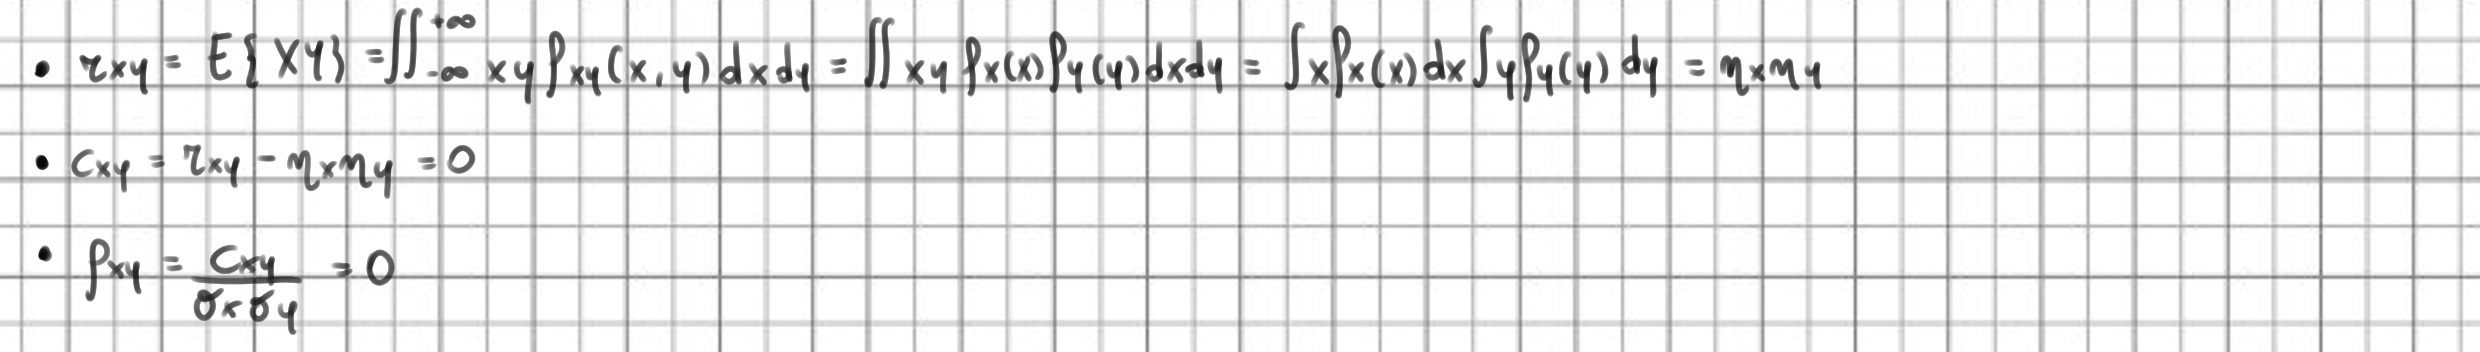 • r_xy = E{XY} = ∬_{-∞}^{+∞} xy f_xy(x,y) dx dy = ∬ xy f_x(x) f_y(y) dx dy = ∫ x f_x(x) dx ∫ y f_y(y) dy = η_x η_y
• c_xy = r_xy - η_x η_y = 0
• ρ_xy = c_xy / (σ_x σ_y) = 0